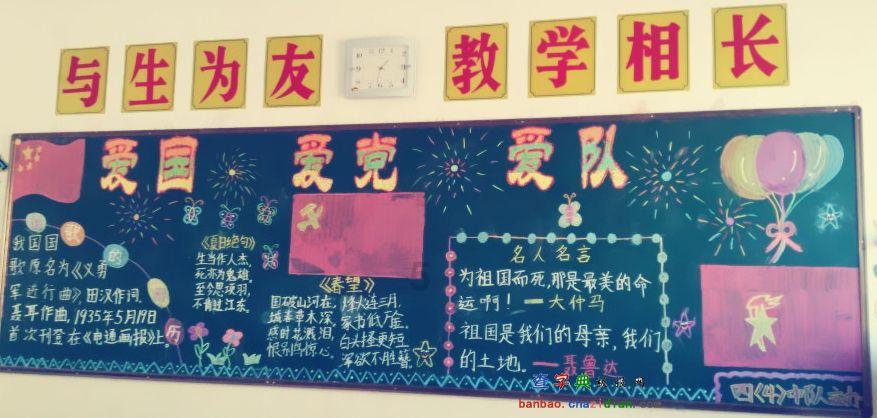 与生为友
教学相长
爱国 爱党 爱队
国歌的
历
我国国
歌原名为《义勇
军进行曲》,田汉作词,
聂耳作曲,1935年5月19日
首次刊登在《电通画报》上
《夏日绝句》
生当作人杰,
死亦为鬼雄,
至今思项羽,
不肯过江东。
《春望》
国破山河在,
城春草木深,
感时花溅泪,
恨别鸟惊心。
烽火连三月,
家书低万金。
白头搔更短,
浑欲不胜簪。
名人名言
为祖国而死,那是最美的命
运啊!一大仲马
祖国是我们的母亲,我们
的土地。一聂鲁达
四(4)中队主办
查字典板报网
banbao.chazidian.com